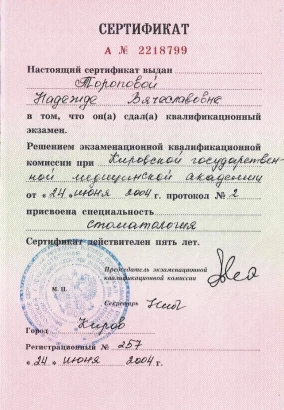 СЕРТИФИКАТ
А № 2218799
Настоящий сертификат выдан
Тороповой
Надежде Вячеславовне
в том, что он(а) сдал(а) квалификационный
экзамен.
Решением экзаменационной квалификационной
комиссии при Кировской государствен-
ной медицинской академии
от «24» июня 2004 г. протокол № 2
присвоена специальность
стоматология
Сертификат действителен пять лет.
Председатель экзаменационной
квалификационной комиссии
М. П.
Секретарь
Город Киров
Регистрационный № 257
«24» июня 2004 г.